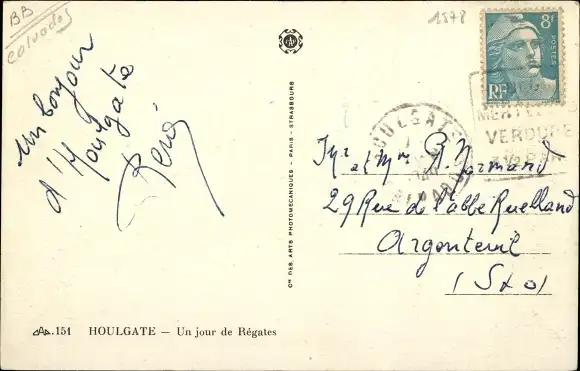 BB
Calvados
1578
8f
POSTES
RF
un bonjour
d'Houlgate
René
HOULGATE
CALVADOS
MER
VERDURE
Mr et Mme G. Normand
29 Rue de l'abbé Ruelland
Argenteuil
(S x O)
Cie DES ARTS PHOTOMECANIQUES - PARIS - STRASBOURG
CAP .151 HOULGATE — Un jour de Régates